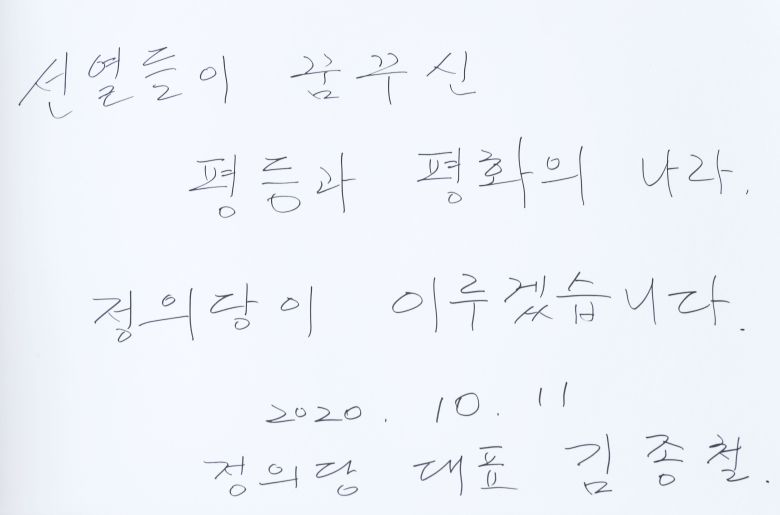 선열들이 꿈꾸신
평등과 평화의 나라.
정의당이 이루겠습니다.
2020. 10. 11
정의당 대표 김종철.